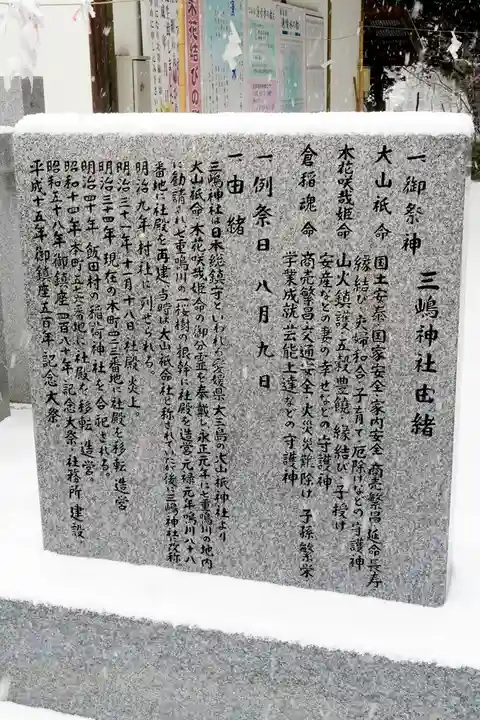 三嶋神社由緒
一、御祭神
大山祇命 国土安泰 国家安全 家内安全 商売繁昌 延命長寿
縁結び 夫婦和合 子育て 厄除けなどの守護神
木花咲哉姫命 山火鎮護 五穀豊饒 縁結び 子授け
安産などの妻の幸せなどの守護神
倉稲魂命 商売繁昌 交通安全 火災災難除け 子孫繁栄
学業成就 芸能上達などの守護神
一、例祭日 八月九日
一、由緒
三嶋神社は日本総鎮守といわれる愛媛県大三島の大山祇神社より
大山祇命 木花咲哉姫命の御分霊を奉戴し永正元年に七重鳴川の地内
に勧請され七重鳴川の一桜樹の根幹に社殿を造営 元禄元年鳴川八十八
番地に社殿を再建 当時は大山祇命社と称されていたが後に三嶋神社と改称
明治九年 村社に列せられる。
明治三十一年十月十八日 社殿炎上。
明治三十四年 現在の本町四二三番地に社殿を移転造営
明治四十年 飯田村の稲荷神社を合祀される。
昭和十四年 本町五三六番地に社殿を移転造営。
昭和五十八年 御鎮座四百八十年記念大祭 社務所建設
平成十五年 御鎮座五百年記念大祭。
花結びの